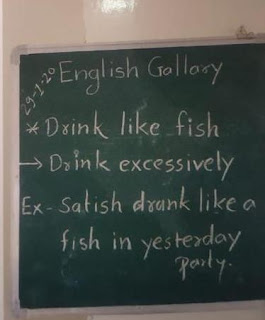 29-1-20
English Gallary
* Drink like fish
→ Drink excessively
Ex- Satish drunk like a
fish in yesterday
party.